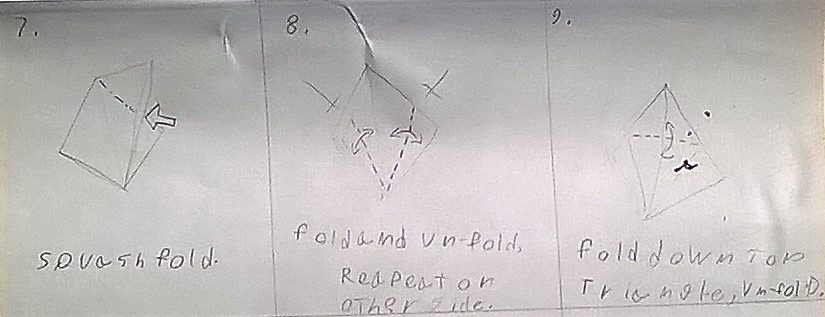 7.
squash fold.
8.
fold and un-fold,
Reapeat on
other side.
9.
fold down top
Triangle, un-fold.